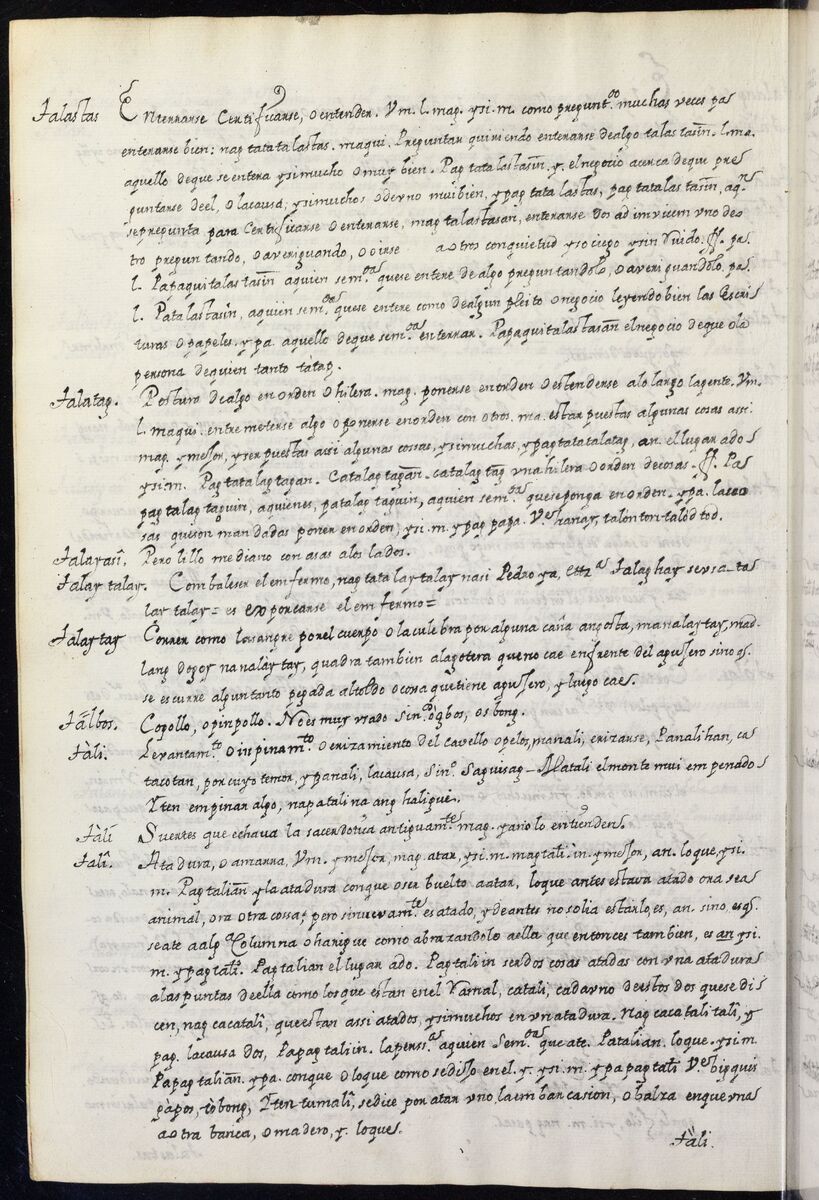 Talastas Enterarse Certificarse, o entender. Vm. l. mag. ysi. m. como pregunt.do muchas veces pas
enterarse bien: nag tatatalastas. maqui. Preguntar quiriendo enterarse de algo talastasin. l. ma.
aquello deque se entera ysi mucho o muy bien. Pag tatalastasin. y. el negocio acerca deque pre
guntarse de el, o la causa, ysi muchos o de vno mui bien, ypag tatalastas, pag tatalastasin, aq.n
se pregunta para Certificarse o enterarse, mag talastasan, enterarse dos ad invicem vno de o
tro preguntando, o averiguando, o oirse a otros con quietud y sociego ysin Ruido. ff. pa.
l. Papaquitalastasin aquien sem.da quese entere de algo preguntandolo, o averiguandolo. pa.
l. Patalastasin, aquien sem.da quese entere como de algun pleito o negocio leyendo bien las Escri
turas o papeles. y pa. aquello deque sem.da enterrar. Papaquitalastasan el negocio deque o la
persona de quien tanto tàtag.
Talatag. Postura de algo en orden o hilera. mag. ponerse en orden o estenderse alo largo lagente. Vm.
l. maqui. entremeterse algo o ponerse en orden con otros. ma. estar puestas algunas cosas assi.
mag. ymejor, y ser puestas asi algunas cossas, ysi muchas, ypag tatatalatag, an. el lugar ados
ysi m. Pag tatalagtagan. Catalagtagan. catalagtag vna hilera o orden de cosas. ff. Pa
pag talag taguin, aquienes, patalag taguin, aquien sem.da que se ponga en orden. y pa. las co
sas que son mandadas poner en orden, ysi. m. ypag papa. V.es hanay, talonton. talodtod.
Talayasi. Perolillo mediano con asas alos lados.
Talay talay. Combaleser el enfermo, nag tatalay talay nasi Pedro ya, ettz.a Talag hay seusa-ta
lay talay = es exporcarse el enfermo =
Talaytay Correr como la sangre por el cuerpo o la culebra por alguna caña angosta, manalaytay, mad
lang dogoy nanalaytay, quadra tambien alagotera que no cae enfrente del agujero sino q.
se escurre algun tanto pegada al toldo o cosa que tiene agujero, y luego cae.
Tálbos. Copollo, o pinpollo. No es muy vsado sin.o ògbos, osbong.
Tàli. Levantam.to o inpinam.to o erizamiento del cavello o pelos, manali, erizarse, Panalihan, ca
tacotan, por cuyo temor, y panali, la causa, Sin.o Saguisag - Matali el monte mui empenado
Yten empinar algo, napatali na ang haligui.
Tàli Suertes que echava la sacerdotisa antiguam.te mag. ya no lo entienden.
Talî. Atadura, o amarra, Vm. ymejor, mag. atar, ysi. m. magtali. in. ymejor, an. loque, ysi.
m. Pag talian y la atadura conque o ser buelto a atar, loque antes estava atado ora sea
animal, ora otra cossa, pero si nuevam.te es atado, y de antes no solia estarlo, es, an. sino. es q.
se ate a alg.a Columna o harigue como abrazandolo aella que entonces tambien, es an ysi.
m. ypagtali. Pag talian el lugar ado. Pag taliin ser dos cosas atadas con vna atadura
alas puntas de ella como los que estan en el Ramal, catali, cada vno de estos dos que se di
cen, nag cacatali, que estan assi atados, ysi muchos en vn atadura. Nag cacatali tali, y
pag. la causa dos, Papag taliin. la pers.a aquien sem.da que ate. Patalian. loque. ysi m.
Papag talian. y pa. conque o loque como se dijo en el. y. ysi. m. ypa pagtali V.es bigquis
gàpos, tòbong, Yten tumali, se dice por atar vno la embarcasion, o balza enque va
a otra banca, o madero, y. loque.
Tàli.